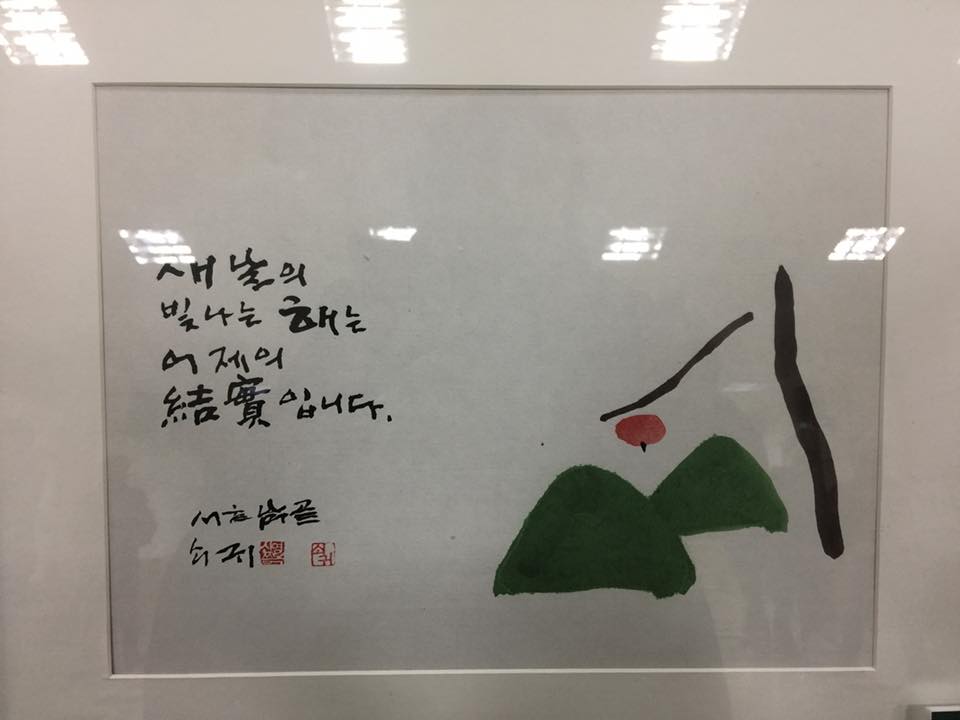 새 날의
빛나는 해는
어제의
結實입니다.
쇠귀